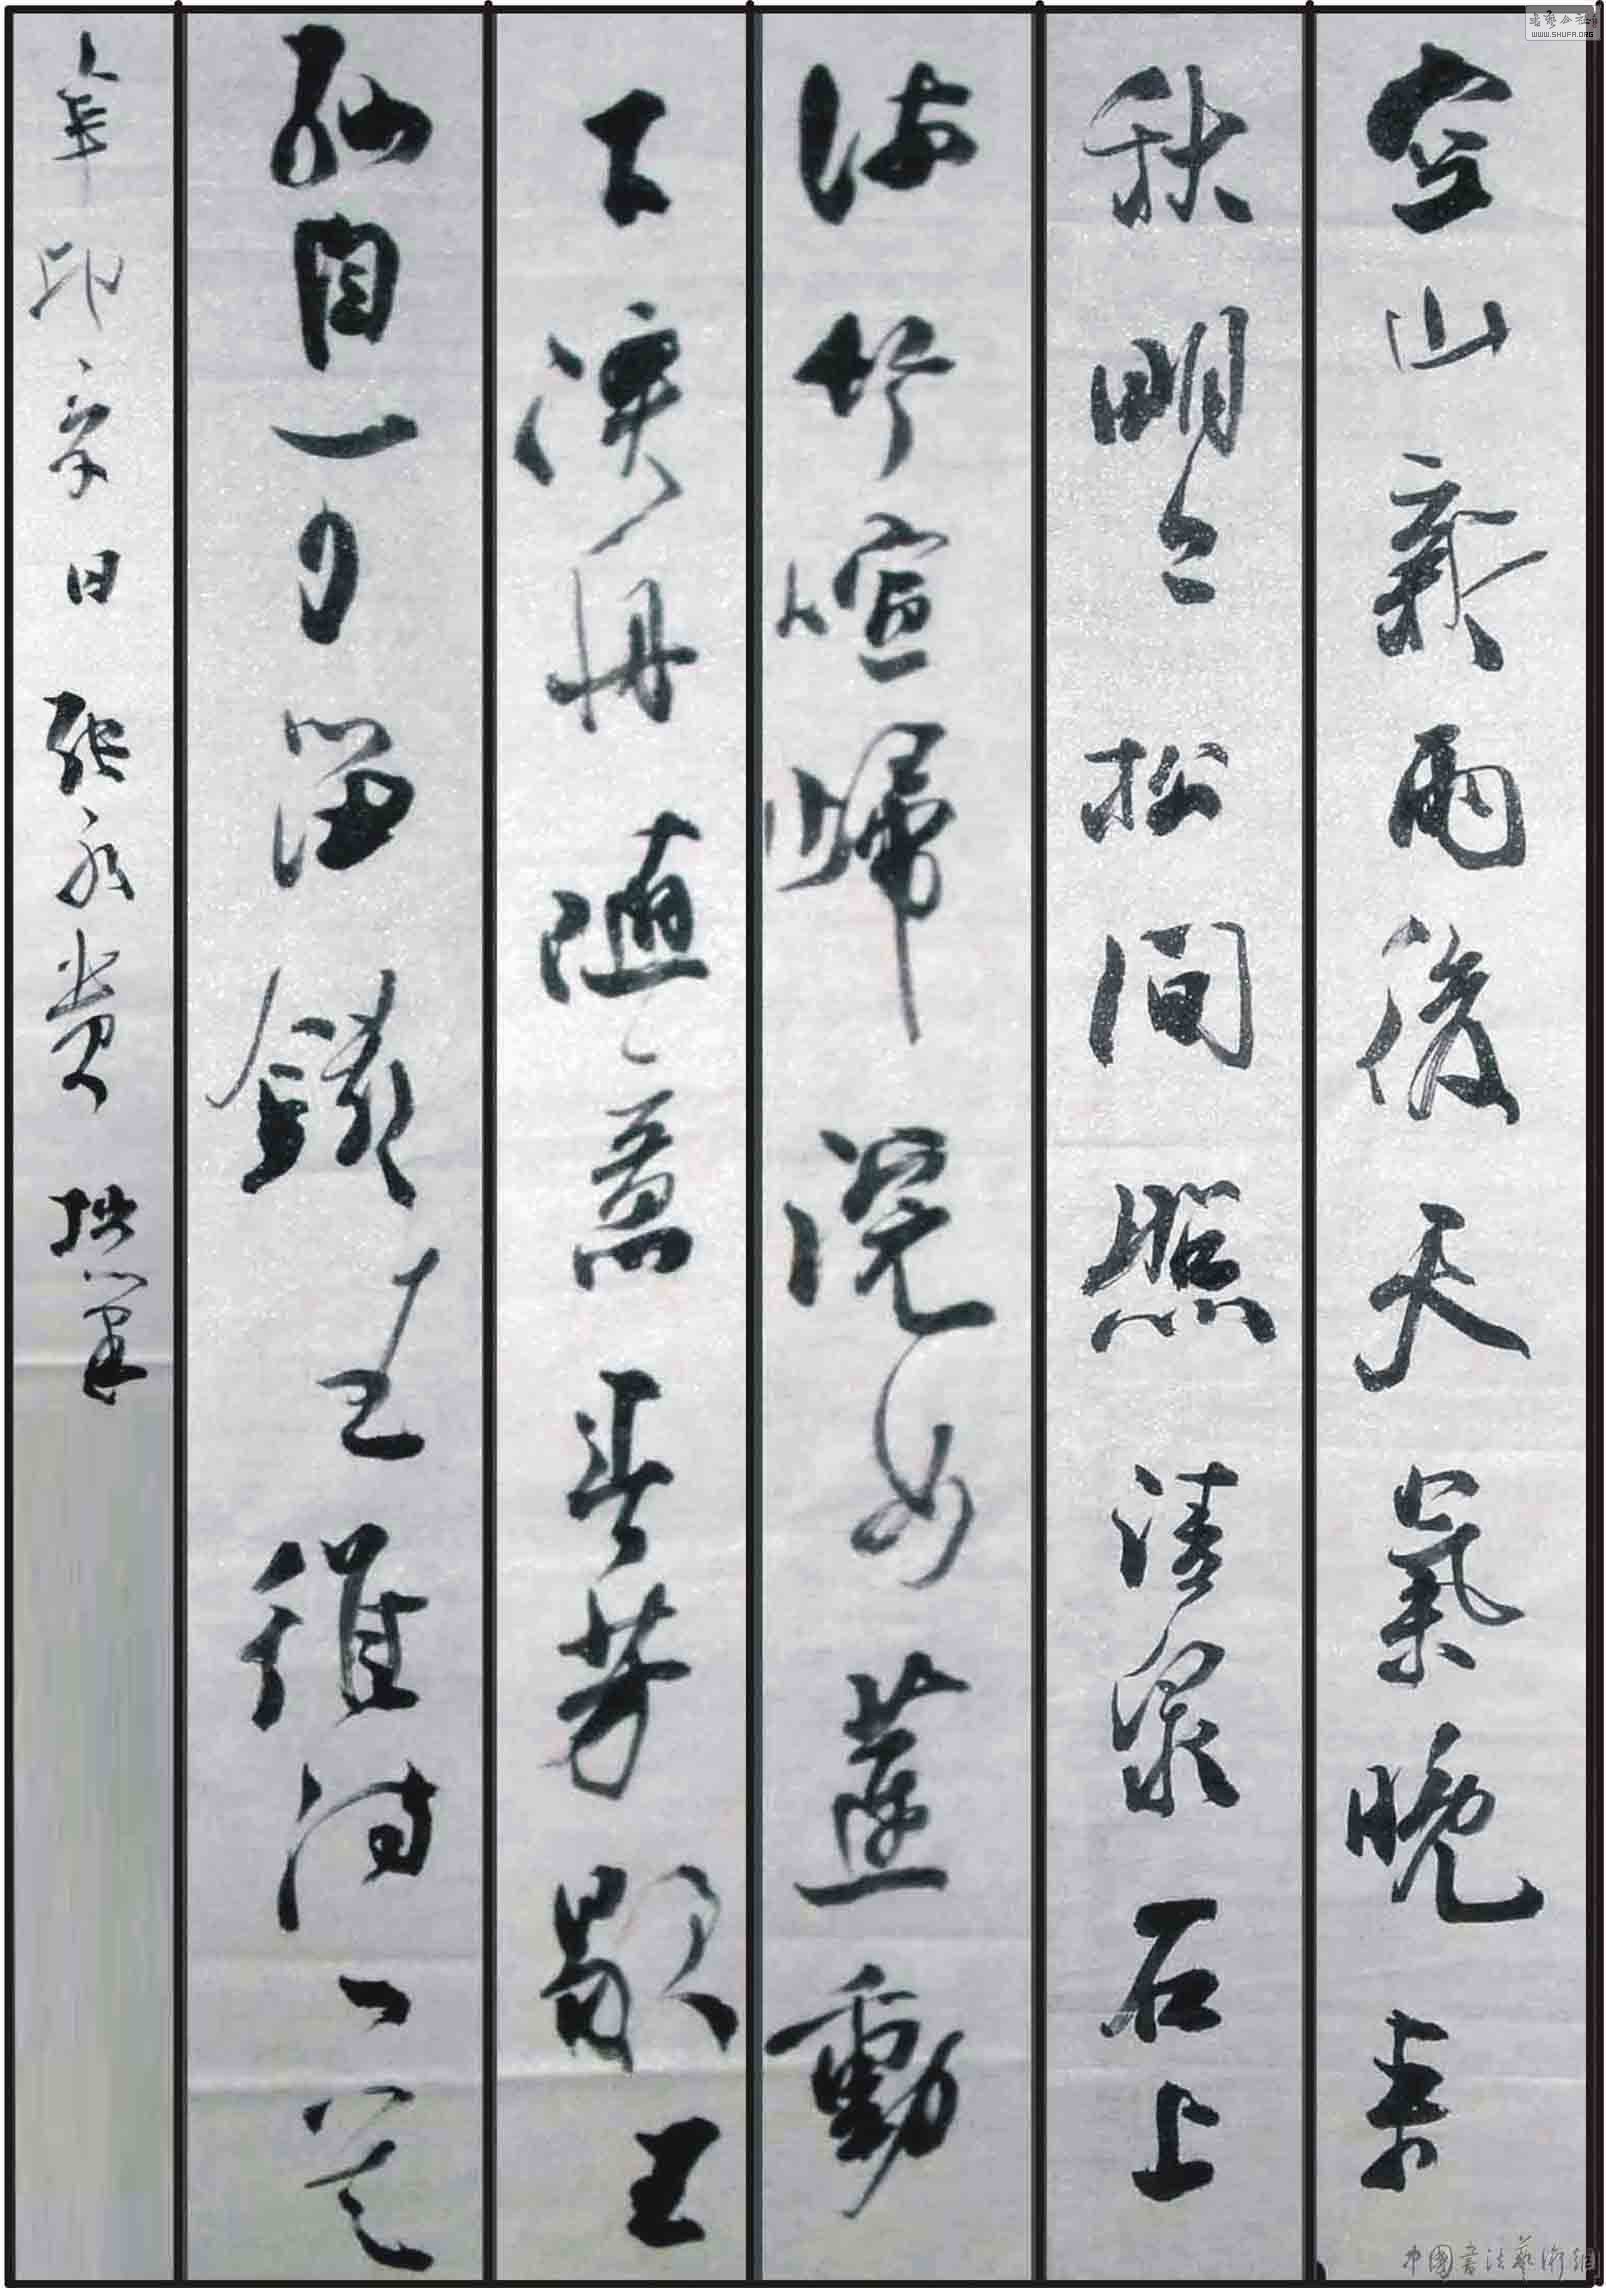 空山新雨後天氣晚来
秋明松間照清泉石上
流竹喧歸浣女蓮動
下漁舟隨意春芳歇王
孫自可留錄王維詩一首
卯日張永貴拙筆
WWW.SHUFA.ORG
中國書法藝術網